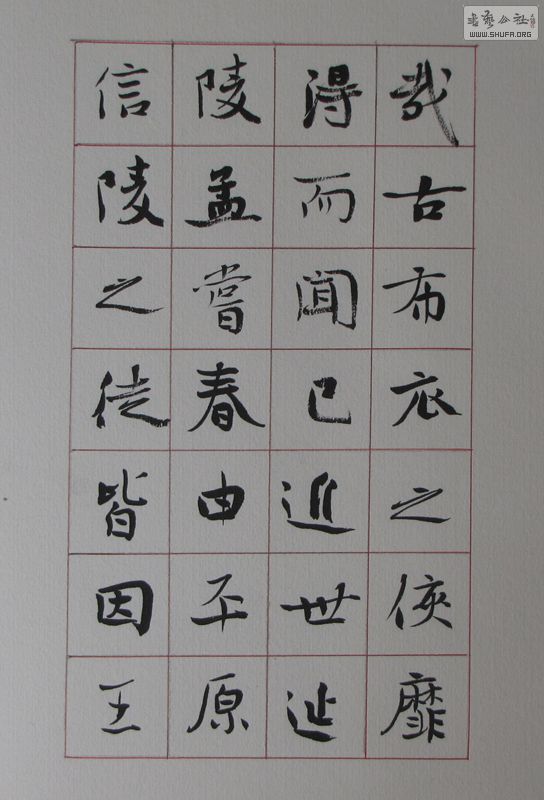 哉古布衣之俠靡
得而聞已近世延
陵孟嘗春申平原
信陵之徒皆因王
書藝公社
WWW.SHUFA.ORG